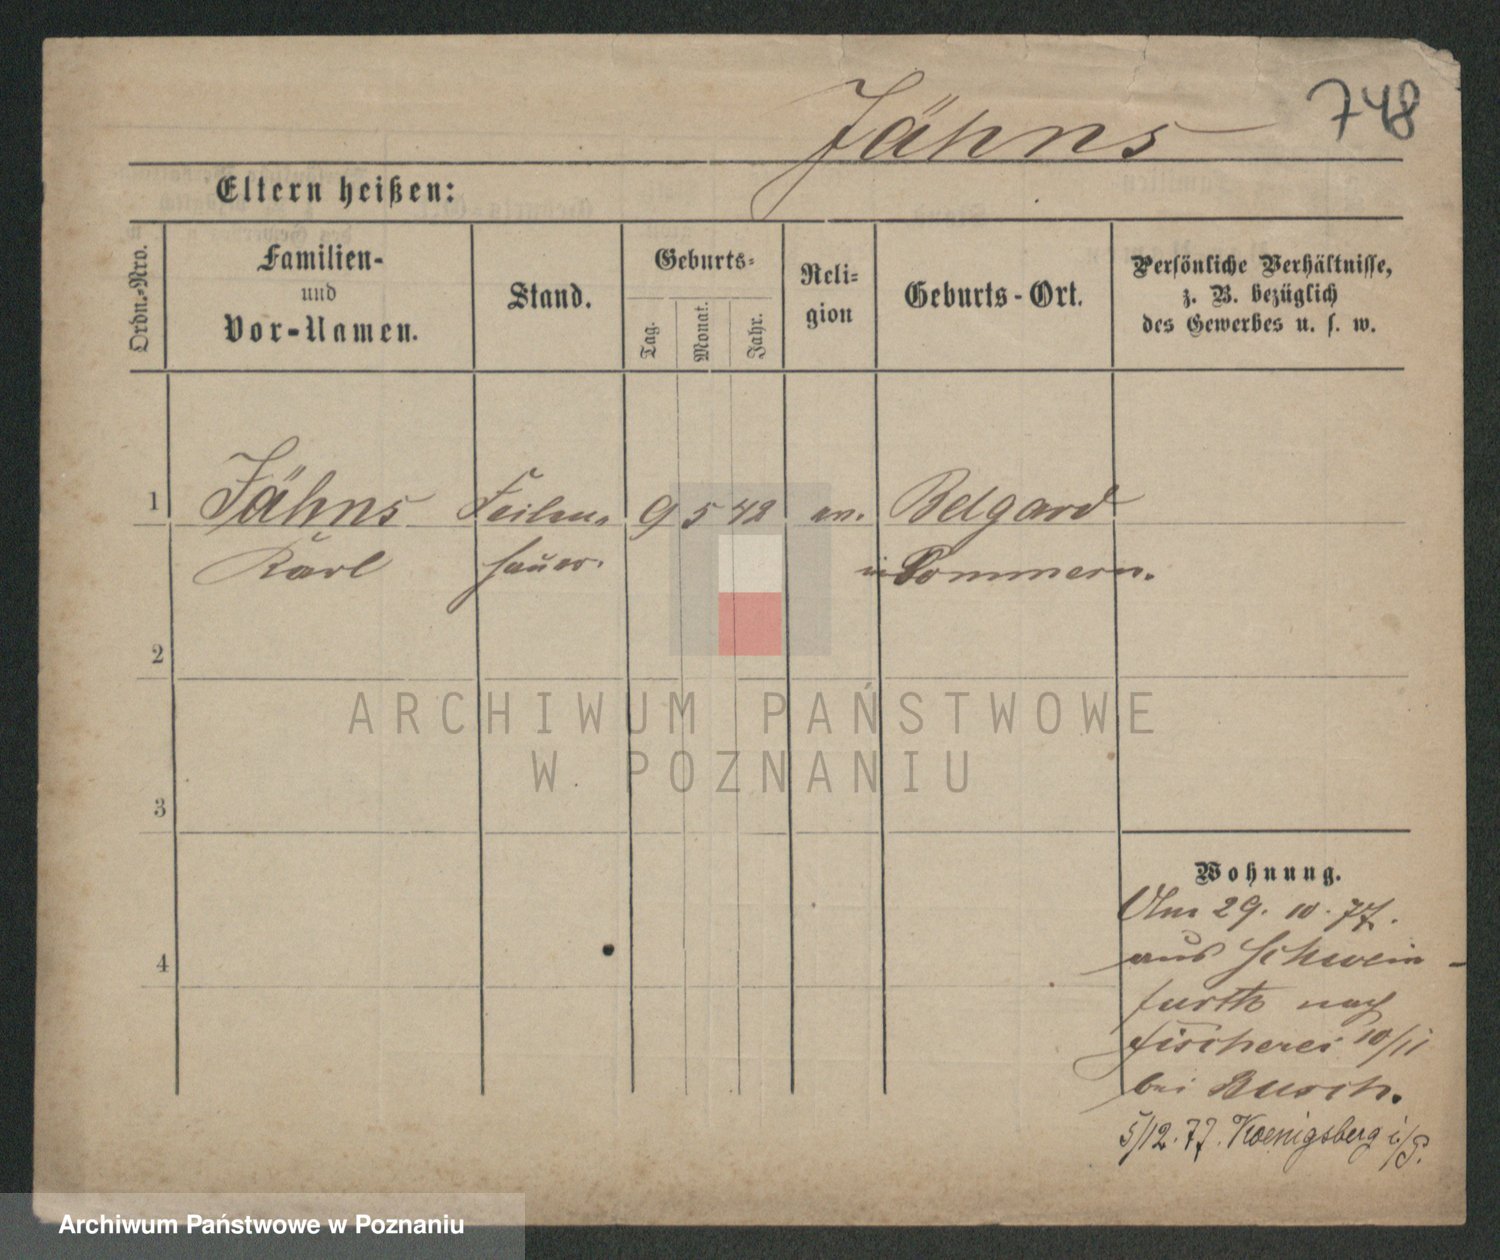 Jähns
748
Eltern heißen:
Ordn.-Nro.
Familien-
und
Vor-Namen.
Stand.
Geburts-
Tag.
Monat.
Jahr.
Reli-
gion
Geburts-Ort.
Persönliche Verhältnisse,
z. B. bezüglich
des Gewerbes u. s. w.
1 Jähns Feilen- 9 5 42 ev. Belgard
Karl hauer. in Pommern.
2
3
4
Wohnung.
Am 29. 10. 77.
aus Schwein-
furth nach
Fischerei 10/11
bei Busch.
5/12. 77. Koenigsberg i/P.
ARCHIWUM PAŃSTWOWE
W POZNANIU
Archiwum Państwowe w Poznaniu